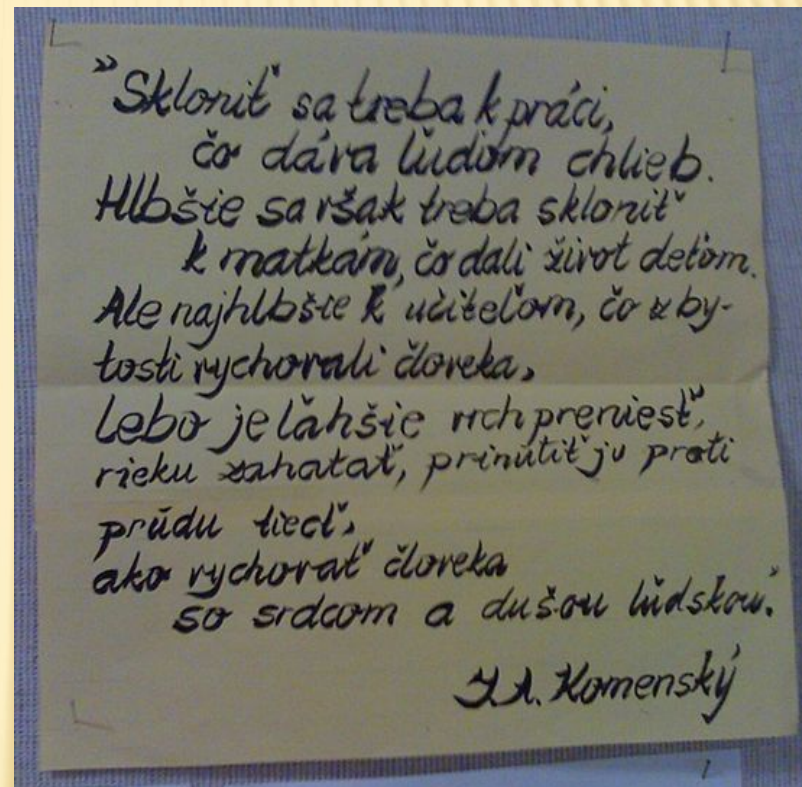 "Skloniť sa treba k práci,
čo dáva ľuďom chlieb.
Hlbšie sa však treba skloniť
k matkám, čo dali život deťom.
Ale najhlbšie k učiteľom, čo z by-
tosti vychovali človeka,
Lebo je ľahšie vrch preniesť,
rieku zahatať, prinútiť ju proti
prúdu tiecť,
ako vychovať človeka
so srdcom a dušou ľudskou."
J. A. Komenský